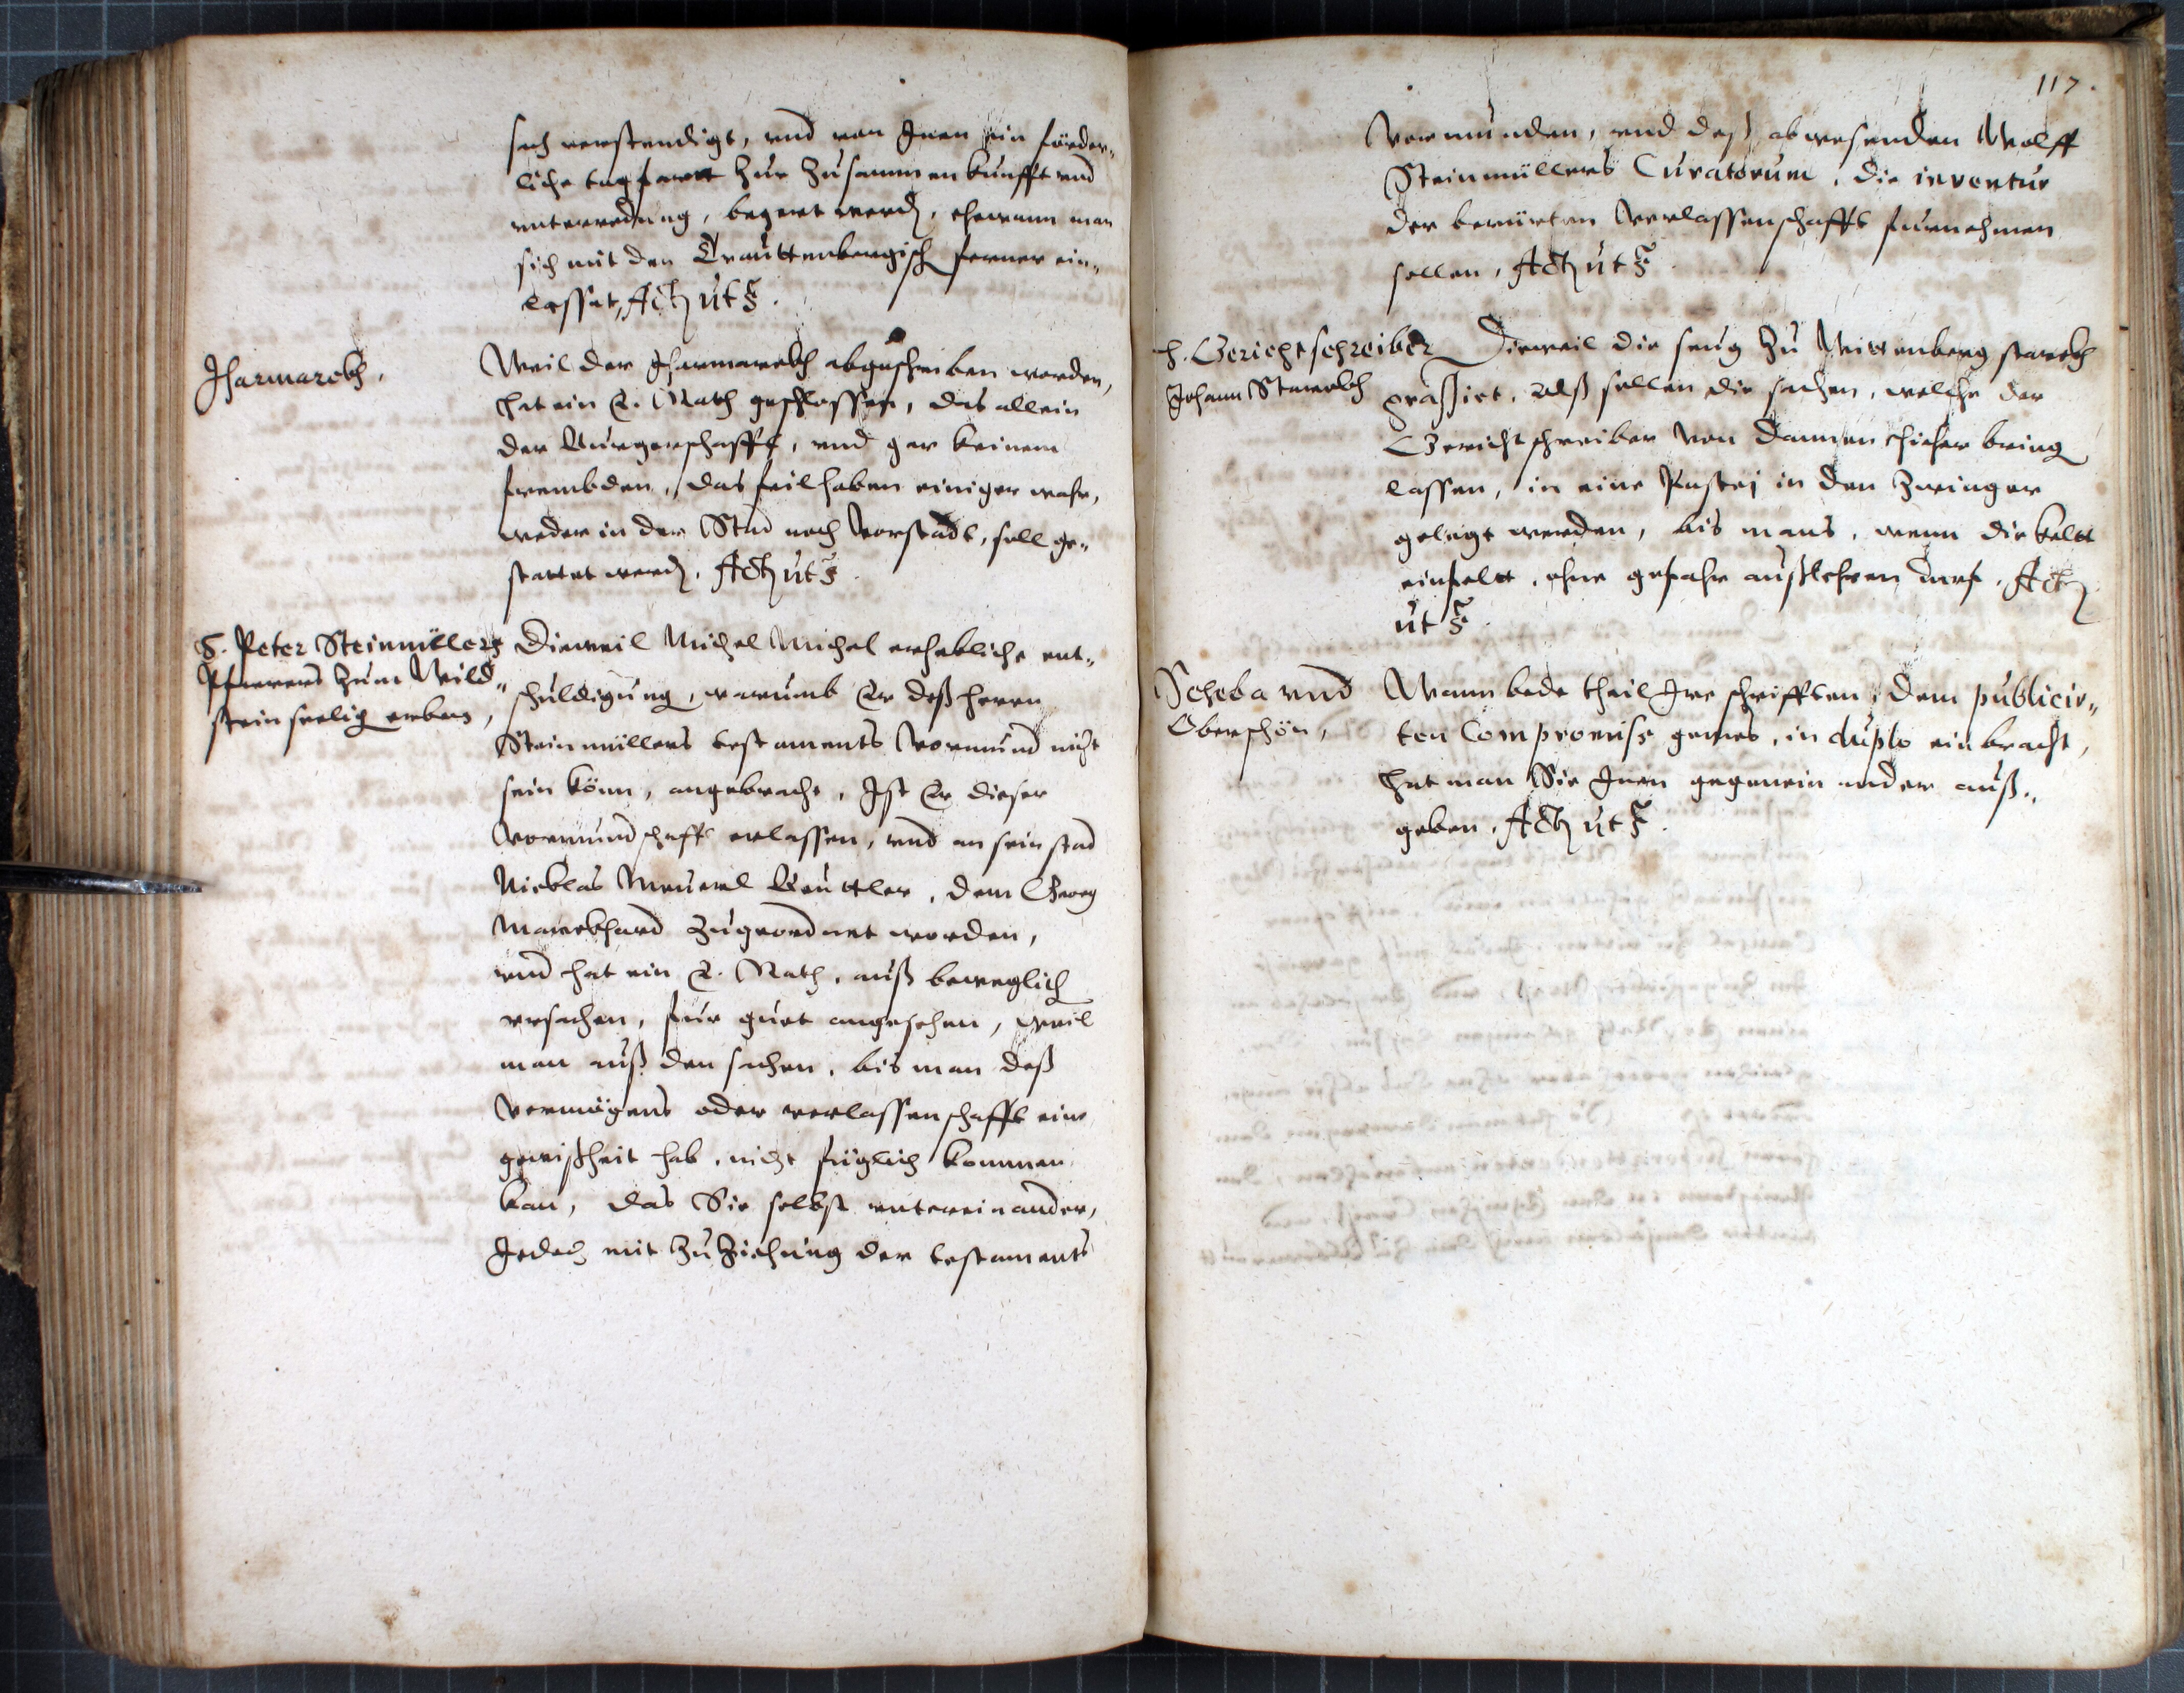 sach verstendigt, vnd von Inen ein förder„
liche tagfartt zur Zusammenkunfft vnd
vnterredung, begert werd, ehe wann man
sich mit den Trauttenbergisch ferner ein„
lasset, Act ut s.
Jharmarckh.
Weil der Jharmarckh abgeschriben worden,
hat ein E. Rath geschlossen, das allein
der Burgerschafft, vnd gar keinem
frembden, das feilhaben einiger wahr,
weder in der Stad noch Vorstadt, soll ge„
stattet werd. Act ut s.
H. Peter Steinmüllers
Pfarrers zum Wild„
stein seelig erben,
Dieweil Michel Michel erhebliche ent„
schuldigung, warumb Er deß herrn
Steinmüllers testaments Vormund nicht
sein könn, angebracht, Ist Er dieser
Vormundschafft erlassen, vnd an sein stad
Nicklas Meuerl Beuttler, dem Georg
Marckhard zugeordnet worden,
vnd hat ein E. Rath, auß beweglich
vrsachen, für guet angesehen, weil
man auß den sachen, bis man deß
Vermögens oder verlassenschafft eine
gewißheit hab, nicht füglich kommen
kan, das Sie selbst vntereinander,
Jedoch mit Zuziehung der testaments
117.
Vormunden, vnd deß abwesenden Wolff
Steinmüllers Curatorum, die inventur
der berürten Verlassenschafft furnehmen
sollen, Act ut s.
H. Gerichtschreiber
Johann Starckh
Dieweil die seug zu Wittenberg starckh
grassirt, Alß sollen die sachen, welche der
Gerichtschreiber von dannen hieher bring
lassen, in eine Pastej in den Zwinger
gelegt werden, bis mans, wenn die keltt
einfelt, ohne gefahr außlehren darf. Act
ut s.
Scheba vnd
Oberschön,
Wann bede theil Ire schrifften, dem publicir„
ten Compromiss gemes, in duplo einbracht,
hat man Sie Inen gegen ein ander auß„
geben. Act ut s.